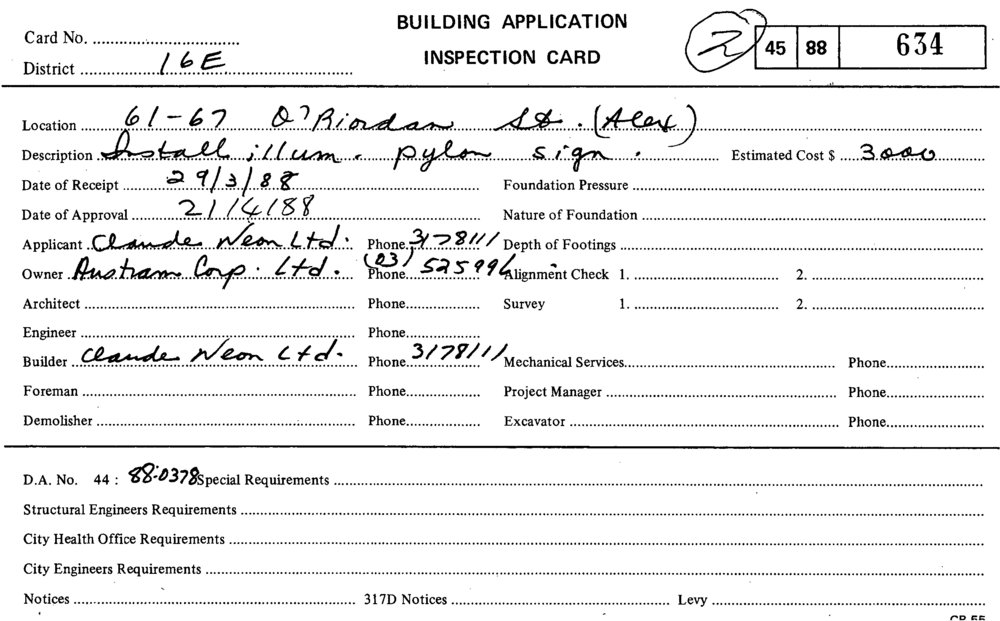 BUILDING APPLICATION
Card No. 2 45 88 634
INSPECTION CARD
District 16E
Location 61-67 O'Riordan St. (Alex)
Description Install illum. pylon sign. Estimated Cost $ 3000
Date of Receipt 29/3/88 Foundation Pressure
Date of Approval 21/4/88 Nature of Foundation
Applicant Claude Neon Ltd. Phone 3178111 Depth of Footings
Owner Austram Corp. Ltd. Phone (03) 525996 Alignment Check 1. 2.
Architect Phone Survey 1. 2.
Engineer Phone
Builder Claude Neon Ltd. Phone 3178111 Mechanical Services Phone
Foreman Phone Project Manager Phone
Demolisher Phone Excavator Phone
D.A. No. 44 : 88-0378 Special Requirements
Structural Engineers Requirements
City Health Office Requirements
City Engineers Requirements
Notices 317D Notices Levy